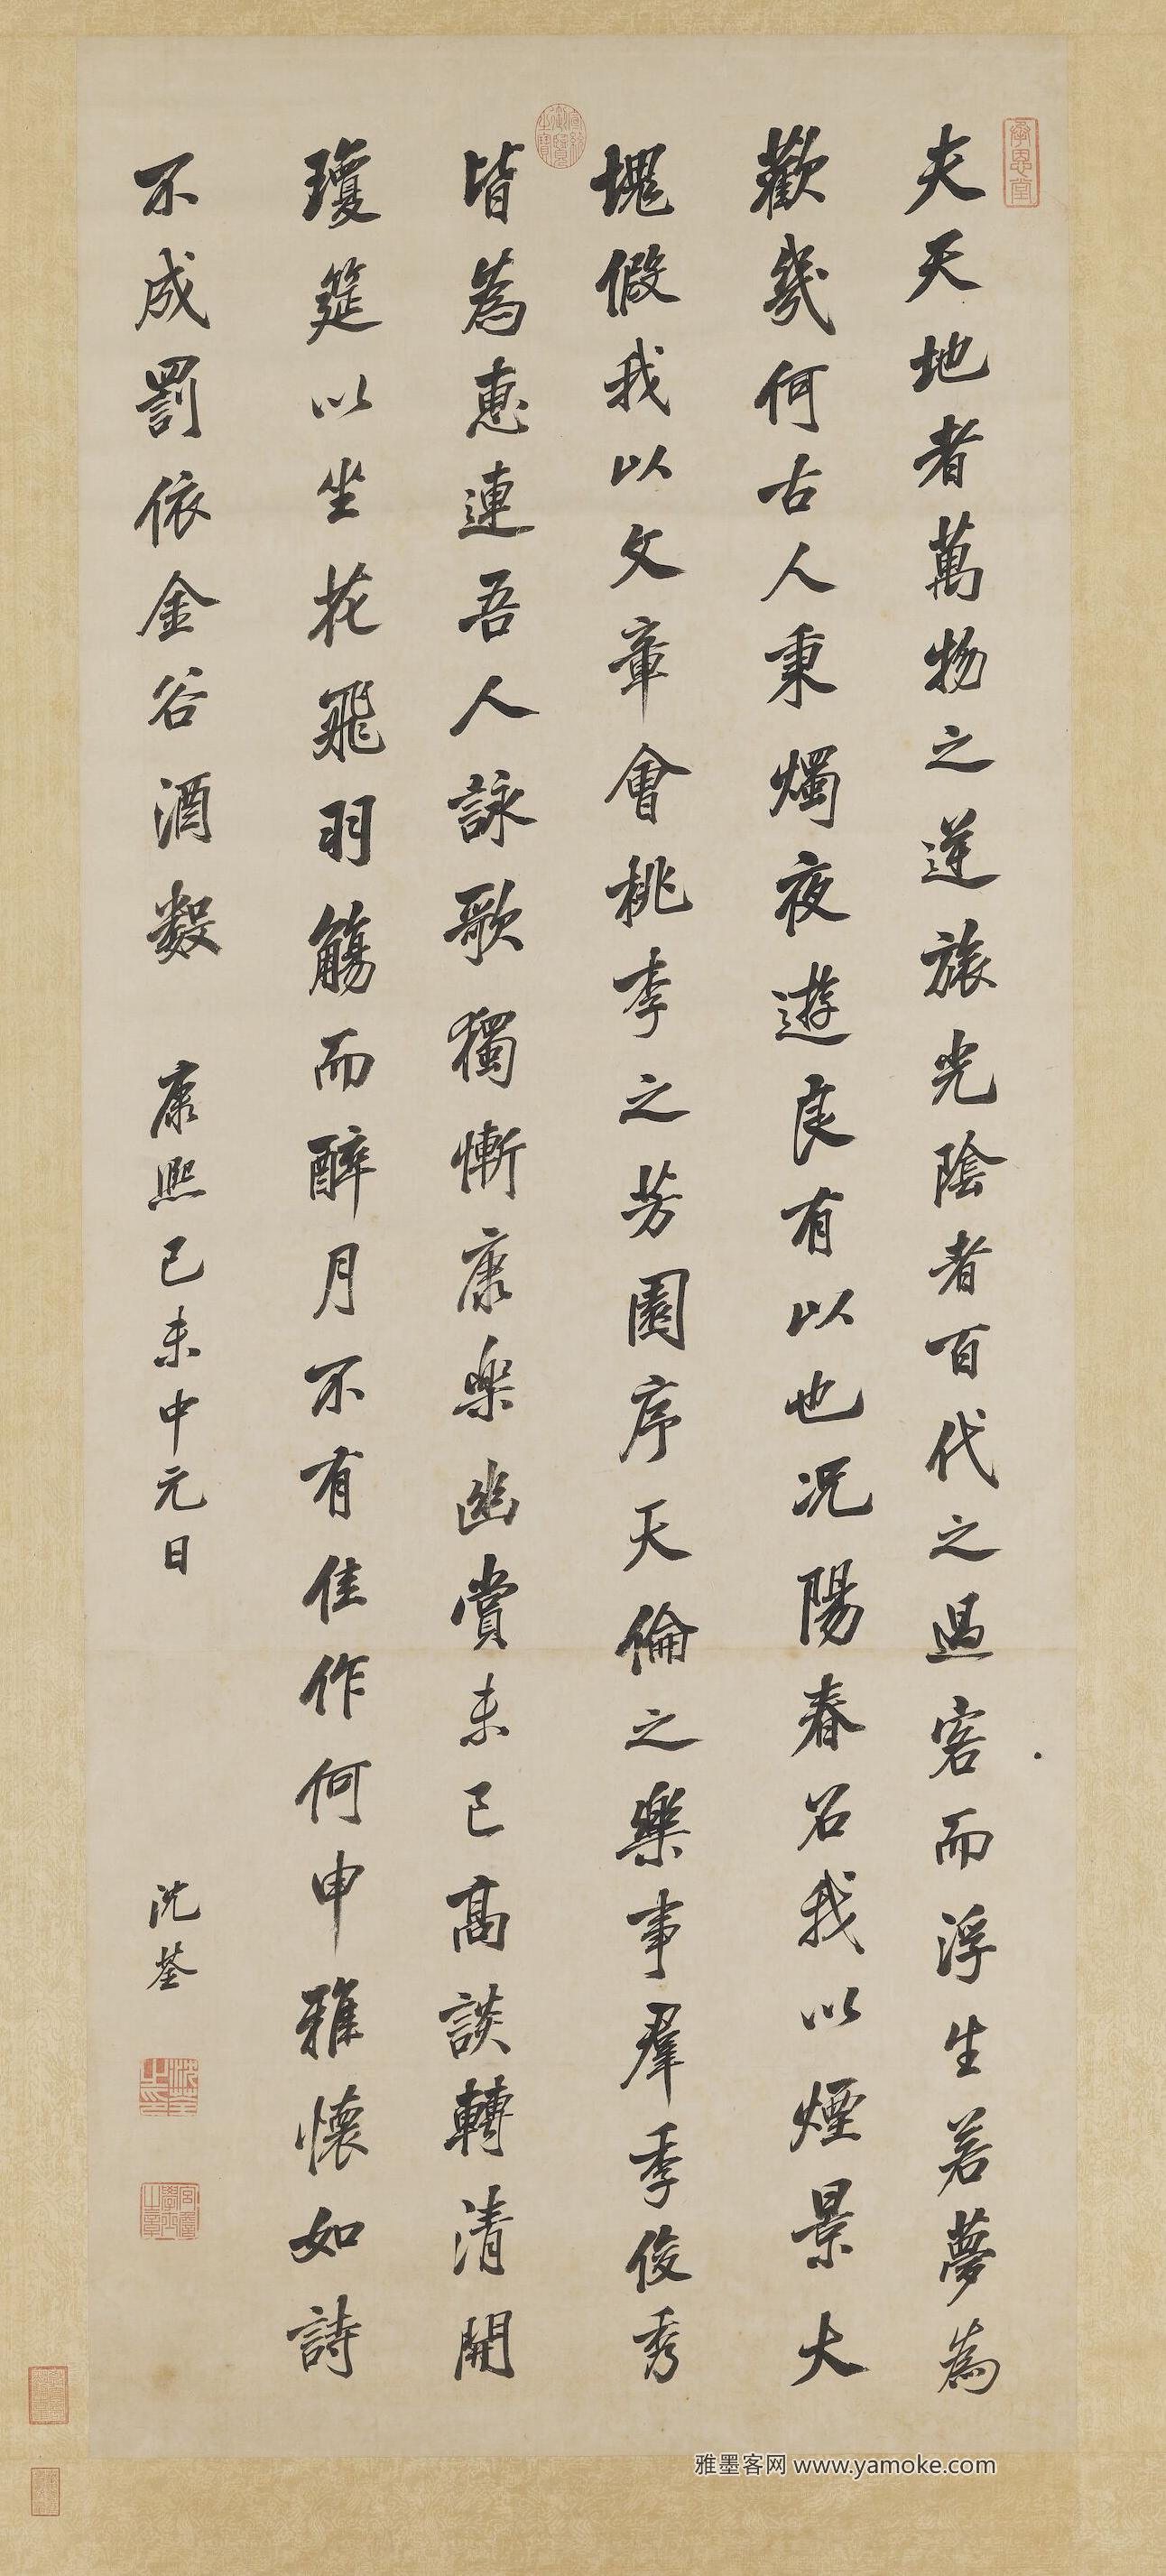 夫天地者萬物之逆旅光陰者百代之過客而浮生若夢為
歡幾何古人秉燭夜遊良有以也況陽春召我以煙景大
塊假我以文章會桃李之芳園序天倫之樂事羣季俊秀
皆為惠連吾人詠歌獨慚康樂幽賞未已高談轉清開
瓊筵以坐花飛羽觴而醉月不有佳作何申雅懷如詩
不成罰依金谷酒數 康熙己未中元日
沈荃
承恩堂
沈荃之印
宮詹學士之章
雅墨客网 www.yamoke.com